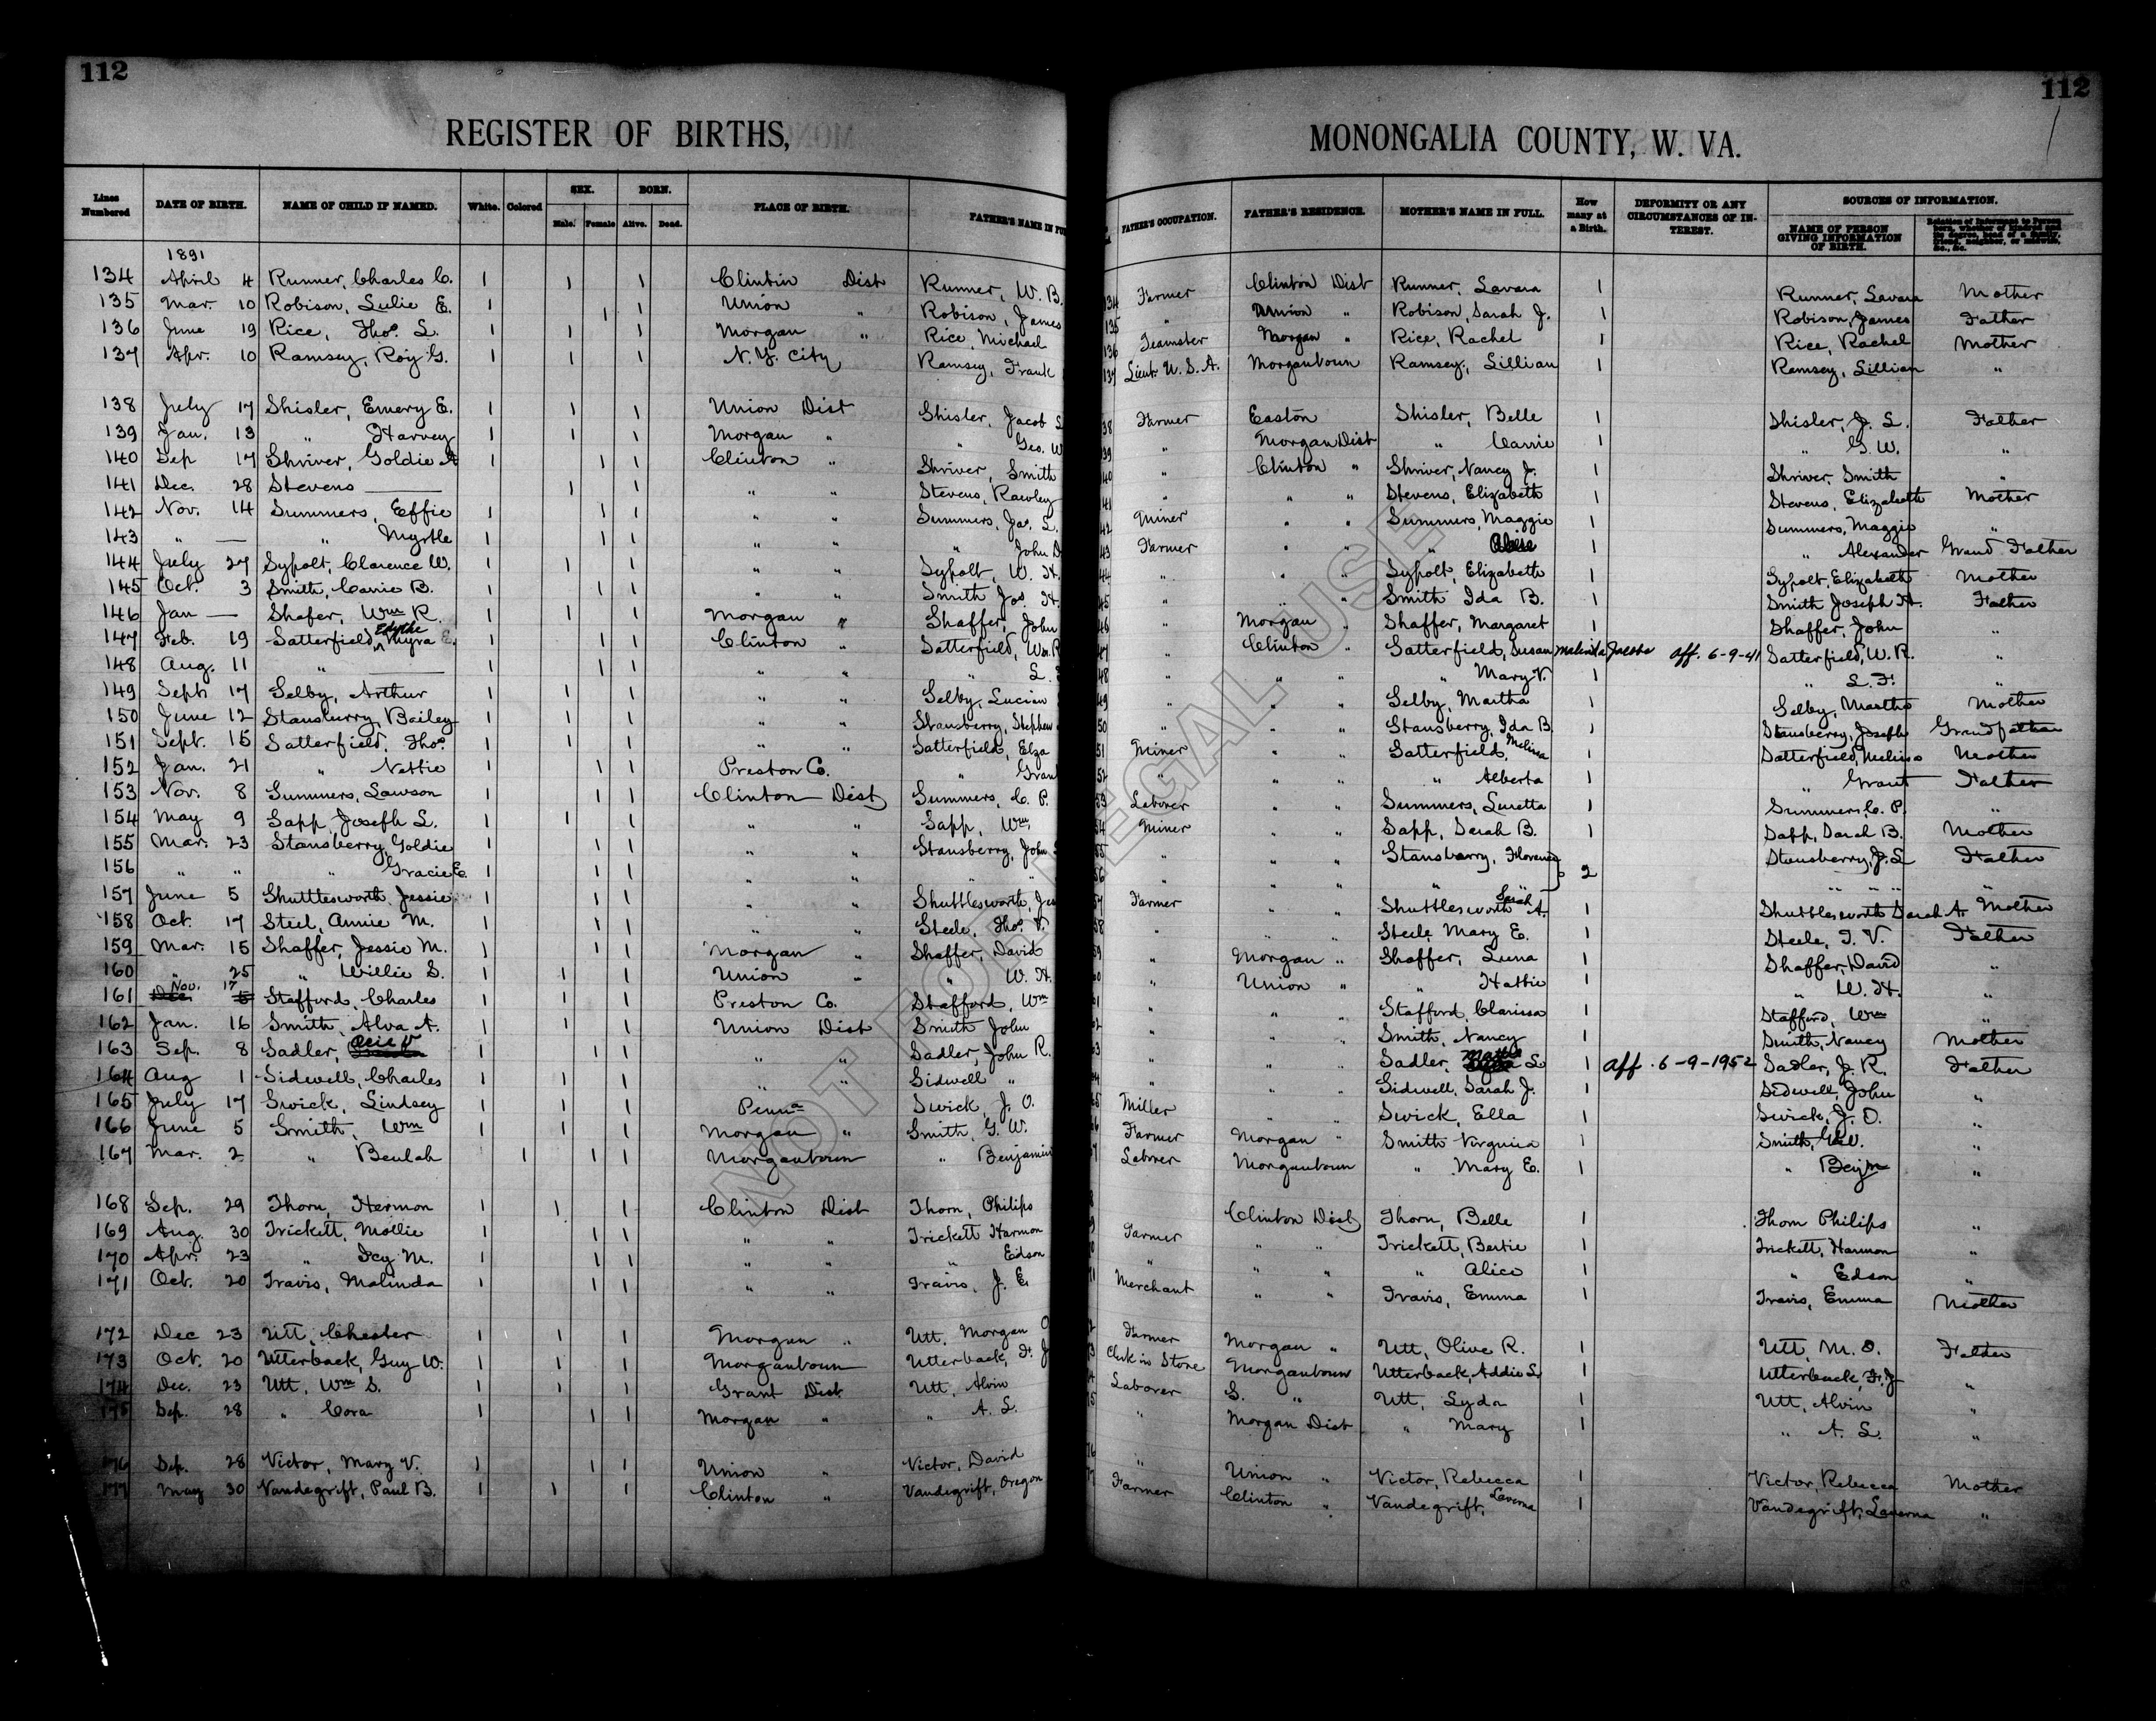 112
REGISTER OF BIRTHS,
Lines Numbered | DATE OF BIRTH. | NAME OF CHILD IF NAMED. | White. | Colored | SEX. Male. Female | BORN. Alive. Dead. | PLACE OF BIRTH. | FATHER'S NAME IN FU
1891
134 April 4 Runner, Charles C. 1 1 1 Clinton Dist Runner, W. B.
135 Mar. 10 Robison, Lulie E. 1 1 1 Union " Robison, James
136 June 19 Rice, Thos. L. 1 1 1 Morgan " Rice, Michael
137 Apr. 10 Ramsey, Roy G. 1 1 1 N.Y. City Ramsey, Frank
138 July 17 Shisler, Emery E. 1 1 1 Union Dist Shisler, Jacob S
139 Jan. 13 " Harvey 1 1 1 Morgan " " Geo. W
140 Sep 17 Shriver, Goldie A 1 1 1 Clinton " Shriver, Smith
141 Dec. 28 Stevens — 1 1 1 " " Stevens, Rawley
142 Nov. 14 Summers, Effie 1 1 1 " " Summers, Jas. L.
143 " — " Myrtle 1 1 1 " " " John D
144 July 27 Sypolt, Clarence W. 1 1 1 " " Sypolt, W. H.
145 Oct. 3 Smith, Carrie B. 1 1 1 " " Smith Jos. H.
146 Jan — Shafer, Wm R. 1 1 1 Morgan " Shaffer, John
147 Feb. 19 Satterfield, Edythe Myra E. 1 1 1 Clinton " Satterfield, Wm. R
148 Aug. 11 " — 1 1 1 " " " L.
149 Sept 17 Selby, Arthur 1 1 1 " " Selby, Lucian
150 June 12 Stansberry, Bailey 1 1 1 " " Stansberry, Stephen
151 Sept. 15 Satterfield, Thos. 1 1 1 " " Satterfield, Elza
152 Jan. 21 " Nettie 1 1 1 Preston Co. " Grant
153 Nov. 8 Summers, Lawson 1 1 1 Clinton Dist Summers, C. P.
154 May 9 Sapp, Joseph L. 1 1 1 " " Sapp, Wm.
155 Mar. 23 Stansberry, Goldie 1 1 1 " " Stansberry, John
156 " " " Gracie E. 1 1 1 " " " "
157 June 5 Shuttlesworth, Jessie 1 1 1 " " Shuttlesworth, Jes
158 Oct. 17 Steel, Annie M. 1 1 1 " " Steele, Thos. V.
159 Mar. 15 Shaffer, Jessie M. 1 1 1 Morgan " Shaffer, David
160 " 25 " Willie S. 1 1 1 Union " " W. H.
161 Dec. 5 Nov. 17 Stafford, Charles 1 1 1 Preston Co. Stafford, Wm
162 Jan. 16 Smith, Alva A. 1 1 1 Union Dist Smith John
163 Sep. 8 Sadler, Ocie V 1 1 1 " " Sadler, John R.
164 Aug 1 Sidwell, Charles 1 1 1 " " Sidwell "
165 July 17 Swick, Lindsey 1 1 1 Penna Swick, J. O.
166 June 5 Smith, Wm 1 1 1 Morgan " Smith, G. W.
167 Mar. 2 " Beulah 1 1 1 Morgantown " Benjamin
168 Sep. 29 Thorn, Harmon 1 1 1 Clinton Dist Thorn, Philips
169 Aug. 30 Trickett, Mollie 1 1 1 " " Trickett Harmon
170 Apr. 23 " Icy M. 1 1 1 " " " Edson
171 Oct. 20 Travis, Malinda 1 1 1 " " Travis, J. E.
172 Dec 23 Utt, Chester 1 1 1 Morgan " Utt, Morgan
173 Oct. 20 Utterback, Guy W. 1 1 1 Morgantown Utterback, F. J
174 Dec. 23 Utt, Wm S. 1 1 1 Grant Dist Utt, Alvin
175 Sep. 28 " Cora 1 1 1 Morgan " " A. L.
176 Sep. 28 Victor, Mary V. 1 1 1 Union " Victor, David
177 May 30 Vandegrift, Paul B. 1 1 1 Clinton " Vandegrift, Oregon
112
MONONGALIA COUNTY, W. VA.
FATHER'S OCCUPATION. | FATHER'S RESIDENCE. | MOTHER'S NAME IN FULL. | How many at a Birth. | DEFORMITY OR ANY CIRCUMSTANCES OF INTEREST. | SOURCES OF INFORMATION. NAME OF PERSON GIVING INFORMATION OF BIRTH. | Relation of Informant to Person born, whether of kindred and its degree, head of a family, friend, neighbor, or midwife, &c., &c.
134 Farmer Clinton Dist Runner, Lavara 1 Runner, Lavara Mother
135 " Union " Robison, Sarah J. 1 Robison, James Father
136 Teamster Morgan " Rice, Rachel 1 Rice, Rachel Mother
137 Lieut. U. S. A. Morgantown Ramsey, Lillian 1 Ramsey, Lillian "
38 Farmer Easton Shisler, Belle 1 Shisler, J. L. Father
39 " Morgan Dist " Carrie 1 " G. W. "
40 " Clinton " Shriver, Nancy J. 1 Shriver, Smith "
41 " " " Stevens, Elizabeth 1 Stevens, Elizabeth Mother
42 Miner " " Summers, Maggie 1 Summers, Maggie "
43 Farmer " " " 1 " Alexander Grand Father
44 " " " Sypolt, Elizabeth 1 Sypolt, Elizabeth Mother
45 " " " Smith Ida B. 1 Smith Joseph H. Father
46 " Morgan " Shaffer, Margaret 1 Shaffer, John "
47 " Clinton " Satterfield, Susan Malinda Jacobs aff. 6-9-41 Satterfield, W. R. "
48 " " " " Mary V. 1 " L. F. "
49 " " " Selby, Martha 1 Selby, Martha Mother
50 " " " Stansberry, Ida B. 1 Stansberry, Joseph Grandfather
51 Miner " " Satterfield, Melissa 1 Satterfield, Melissa Mother
52 " " " " Alberta 1 " Grant Father
53 Laborer " " Summers, Luretta 1 Summers, C. P. "
54 Miner " " Sapp, Sarah B. 1 Sapp, Sarah B. Mother
55 " " " Stansberry, Florence } 2 Stansberry, J. L Father
56 " " " " " " " " "
57 Farmer " " Shuttlesworth Sarah A. 1 Shuttlesworth Sarah A. Mother
58 " " " Steele Mary E. 1 Steele, T. V. Father
59 " Morgan " Shaffer, Lena 1 Shaffer, David "
60 " Union " " Hattie 1 " W. H. "
61 " " " Stafford, Clarissa 1 Stafford, Wm "
62 " " " Smith, Nancy 1 Smith, Nancy Mother
63 " " " Sadler, Mattie L 1 aff. 6-9-1952 Sadler, J. R. Father
64 " " " Sidwell, Sarah J. 1 Sidwell, John "
65 Miller " " Swick, Ella 1 Swick, J. O. "
66 Farmer Morgan " Smith Virginia 1 Smith, G. W. "
67 Laborer Morgantown " Mary E. 1 " Benjm "
Clinton Dist Thorn, Belle 1 Thorn Philips "
Farmer " " Trickett, Bertie 1 Trickett, Harmon "
" " " " Alice 1 " Edson "
71 Merchant " " Travis, Emma 1 Travis, Emma Mother
Farmer Morgan " Utt, Olive R. 1 Utt, M. O. Father
Clerk in Store Morgantown Utterback, Addie L 1 Utterback, F. J "
Laborer G. " Utt, Lyda 1 Utt, Alvin "
75 " Morgan Dist " Mary 1 " A. L. "
76 " Union " Victor, Rebecca 1 Victor, Rebecca Mother
Farmer Clinton " Vandegrift, Laverna 1 Vandegrift, Laverna "
NOT FOR LEGAL USE